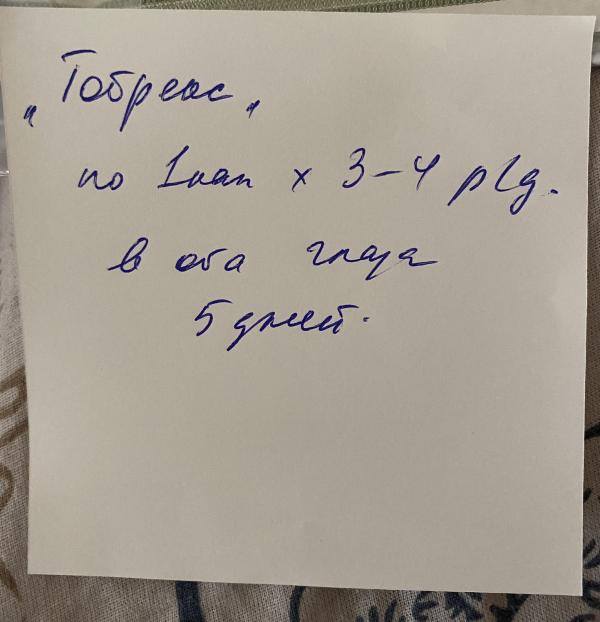 „Тобрекс"
по 1 кап х 3-4 р/д.
в оба глаза
5 дней.